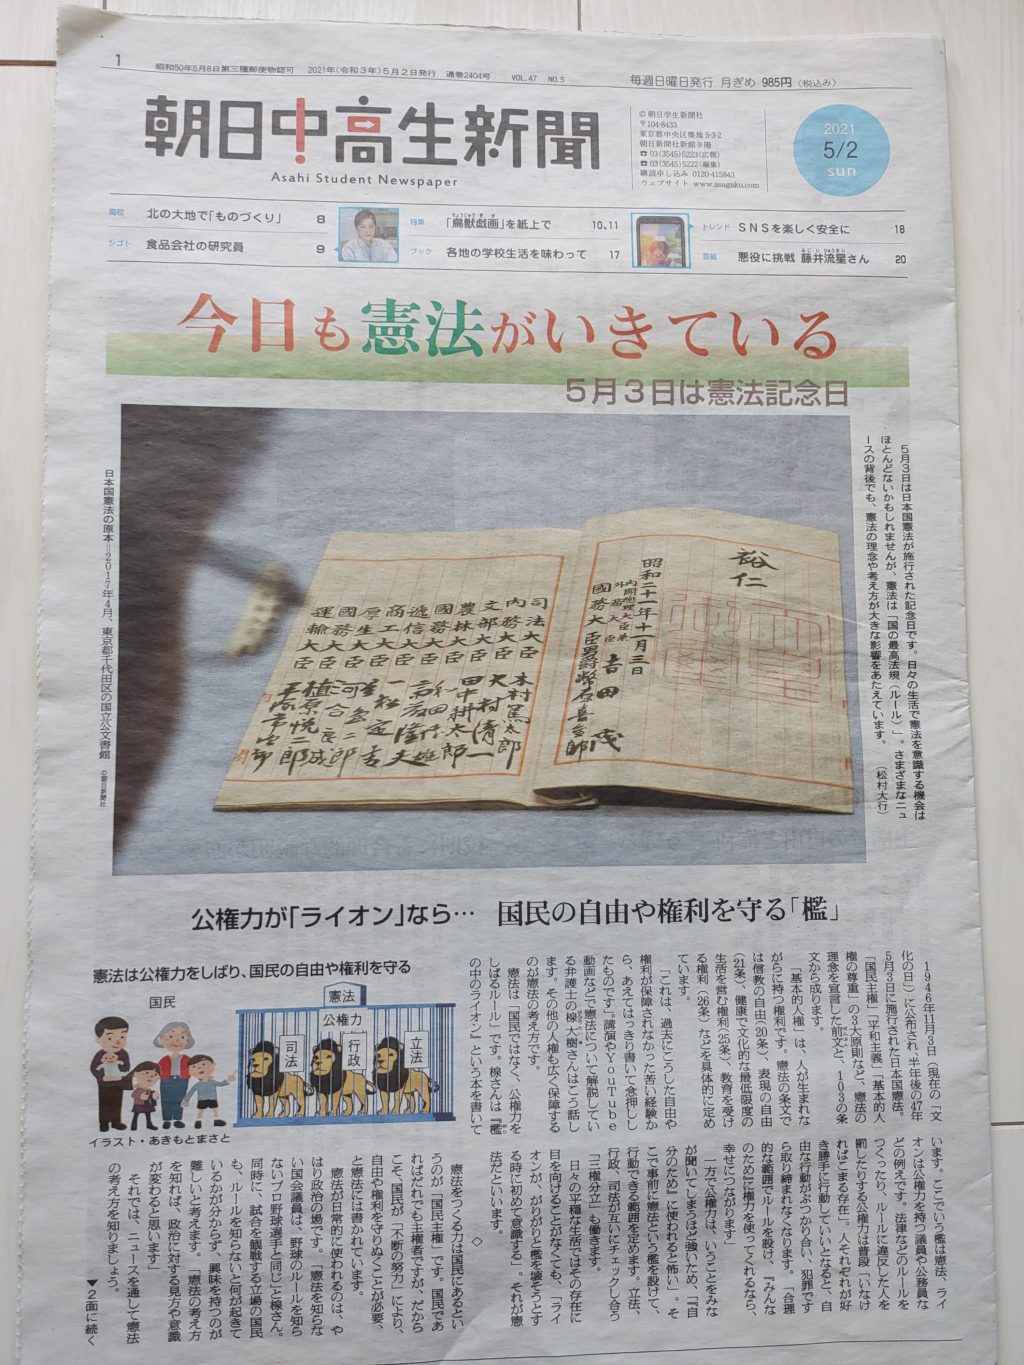 1
昭和50年5月6日第三種郵便物認可　2021年(令和3年)5月2日発行　通巻2404号　VOL.47　NO.5
毎週日曜日発行 月ぎめ 985円（税込み）
朝日中高生新聞
Asahi Student Newspaper
© 朝日学生新聞社
〒104-8433
東京都中央区築地5-3-2
朝日新聞社新館9階
☎ 03(3545)5223(広報)
☎ 03(3545)5222(編集)
購読申し込み 0120-415843
ウェブサイト www.asagaku.com
2021
5/2
sun
高校　北の大地で「ものづくり」　8
シゴト　食品会社の研究員　9
特集　「鳥獣戯画」を紙上で　10,11
ちょうじゅうぎが
ブック　各地の学校生活を味わって　17
トレンド　ＳＮＳを楽しく安全に　18
芸能　悪役に挑戦 藤井流星さん　20
ふじいりゅうせい
今日も憲法がいきている
５月３日は憲法記念日
５月３日は日本国憲法が施行された記念日です。日々の生活で憲法を意識する機会は
ほとんどないかもしれませんが、憲法は「国の最高法規（ルール）」。さまざまなニュ
ースの背後でも、憲法の理念や考え方が大きな影響をあたえています。　（松村大行）
裕仁
昭和二十一年十一月三日
内閣總理大臣兼
外務大臣　吉田茂
國務大臣男爵幣原喜重郎
司法大臣　木村篤太郎
内務大臣　大村清一
文部大臣　田中耕太郎
農林大臣　和田博雄
國務大臣　斎藤隆夫
遞信大臣　一松定吉
商工大臣　星島二郎
厚生大臣　河合良成
國務大臣　植原悦二郎
運輸大臣　平塚常次郎
日本国憲法の原本＝2017年4月、東京都千代田区の国立公文書館　©朝日新聞社
公権力が「ライオン」なら…　国民の自由や権利を守る「檻」
１９４６年11月３日（現在の「文
化の日」）に公布され、半年後の47年
５月３日に施行された日本国憲法。
「国民主権」「平和主義」「基本的人
権の尊重」の３大原則など、憲法の
理念を宣言した前文と、１０３の条
文から成ります。
「基本的人権」は、人が生まれな
がらに持つ権利です。憲法の条文で
は信教の自由（20条）、表現の自由
（21条）、健康で文化的な最低限度の
生活を営む権利（25条）、教育を受け
る権利（26条）などを具体的に定め
ています。
「これは、過去にこうした自由や
権利が保障されなかった苦い経験か
ら、あえてはっきり書いて念押しし
たものです」。講演やＹｏｕＴｕｂｅ
動画などで憲法について解説してい
る弁護士の楾大樹さんはこう話し
ます。その他の人権も広く保障する
のが憲法の考え方です。
憲法は「国民ではなく、公権力を
しばるルール」です。楾さんは『檻
の中のライオン』という本を書いて
憲法は公権力をしばり、国民の自由や権利を守る
国民
憲法
公権力
司法
行政
立法
イラスト・あきもとまさと
います。ここでいう檻は憲法、ライ
オンは公権力を持つ議員や公務員な
どの例えです。法律などのルールを
つくったり、ルールに違反した人を
罰したりする公権力は普段「いなけ
ればこまる存在」。人それぞれが好
き勝手に行動していいとなると、自
由な行動がぶつかり合い、犯罪です
ら取り締まれなくなります。「合理
的な範囲でルールを設け、『みんな
のために』に権力を使ってくれるなら、
幸せにつながります」
一方で公権力は、いうことをみな
が聞いてしまうほど強いため、「『自
分のため』に使われると怖い」。そ
こで事前に憲法という檻を設けて、
行動できる範囲を定めます。立法、
行政、司法が互いにチェックし合う
「三権分立」も働きます。
日々の平穏な生活ではその存在に
目を向けることがなくても、「ライ
オンが、がりがりと檻を壊そうとす
る時に初めて意識する」。それが憲
法だといいます。
◇
憲法をつくる力は国民にあるとい
うのが「国民主権」です。国民であ
ればだれでも主権者ですが、だから
こそ、国民が「不断の努力」により、
自由や権利を守りぬくことが必要、
と憲法には書かれています。
憲法が日常的に使われるのは、や
はり政治の場です。「憲法を知らな
い国会議員は、野球のルールを知ら
ないプロ野球選手と同じ」と楾さん。
同時に、試合を観戦する立場の国民
も、ルールを知らないと何が起きて
いるか分からず、興味を持つのが
難しいと考えます。「憲法の考え方
を知れば、政治に対する見方や意識
が変わると思います」
それでは、ニュースを通して憲法
の考え方を知りましょう。
▼２面に続く